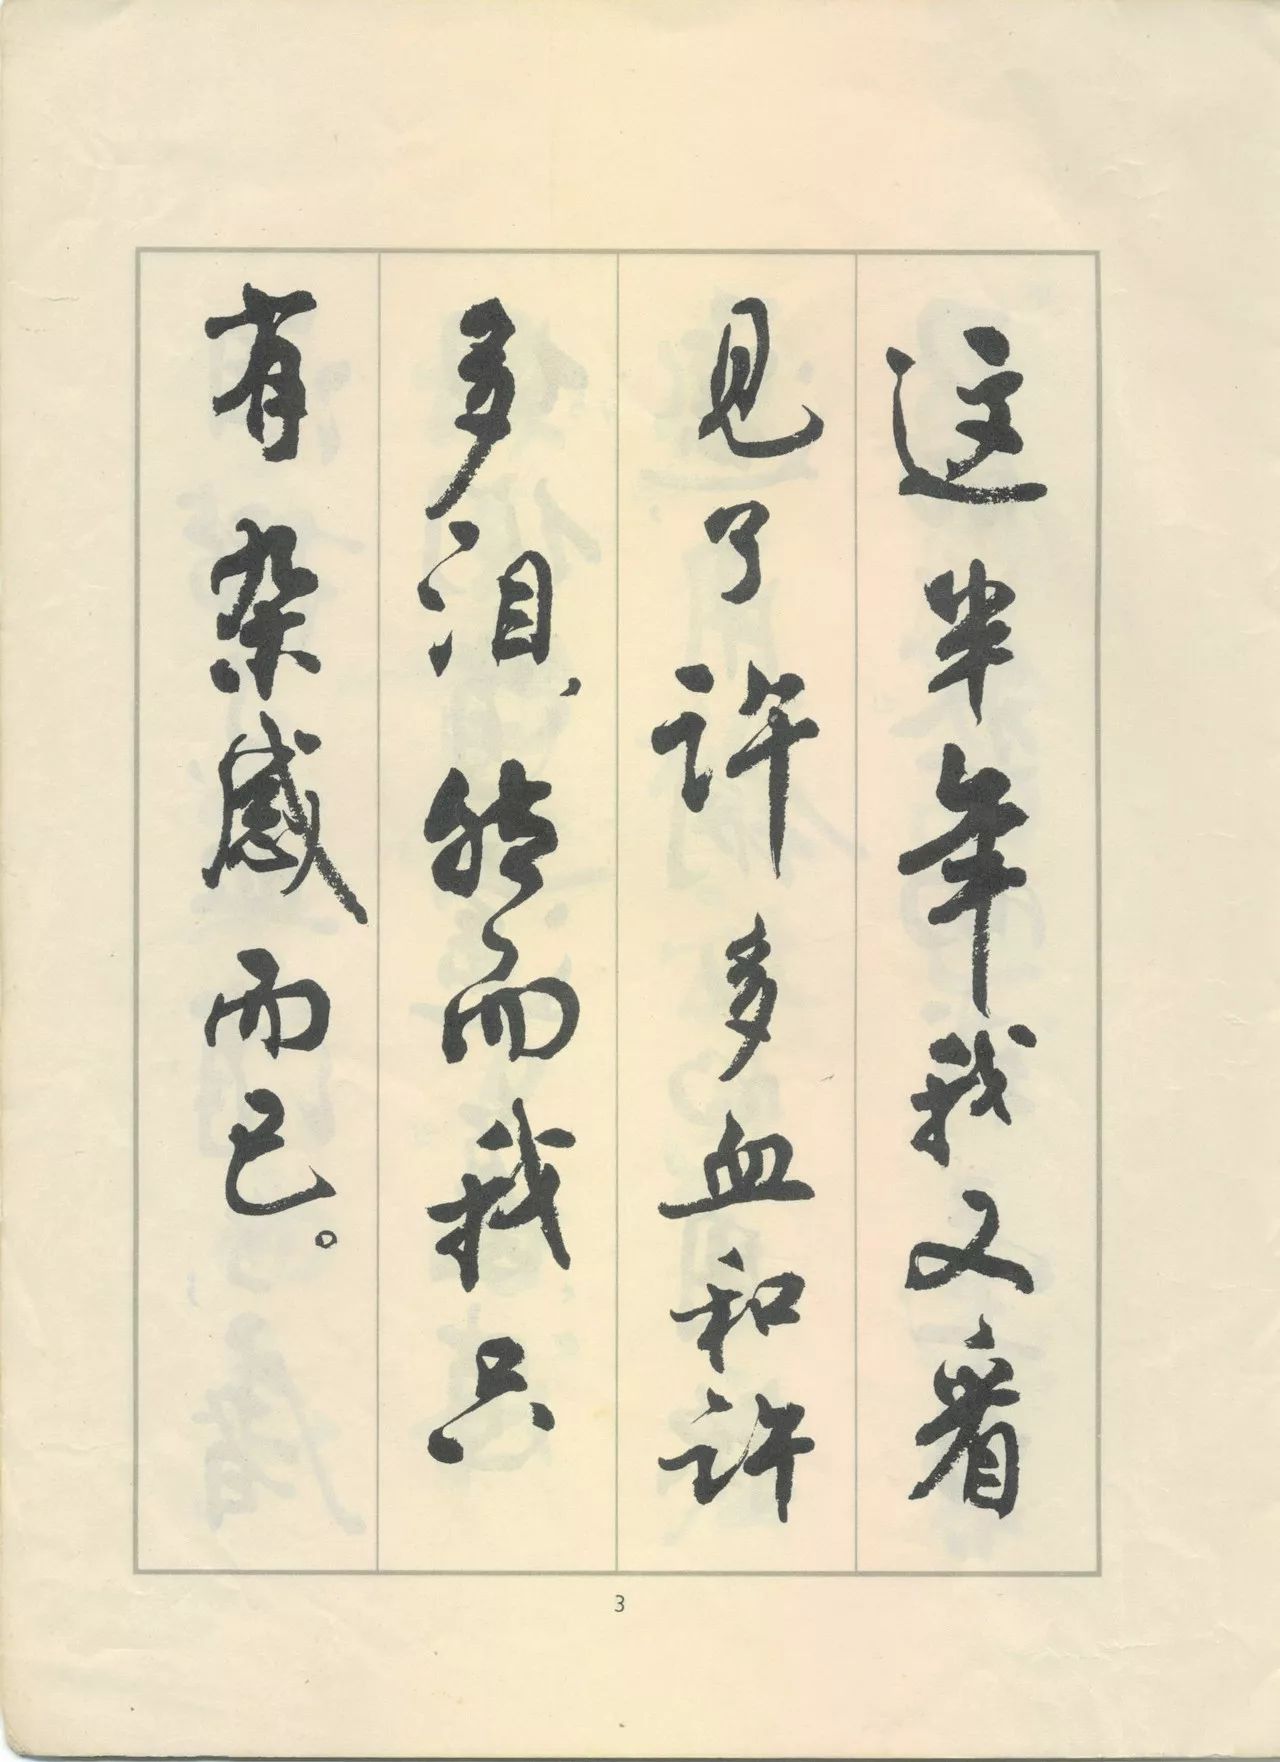 这半年我又看
见了许多血和许
多泪、然而我只
有杂感而已。
3